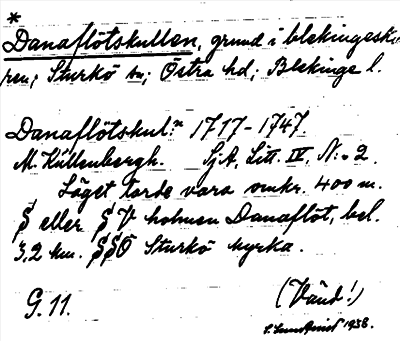 *
Danaflötskullen, grund i blekingeskä
ren; Sturkö sn; Östra hd; Blekinge l.
Danaflötskul:n 1717-1747.
M. Küllenbergh. SjA, Litt. IV, N:o 2.
Läget torde vara omkr. 400 m.
S eller SV holmen Danaflöt, bel.
3,2 km. SSO Sturkö kyrka.
G. 11. (Vänd!)
1938.